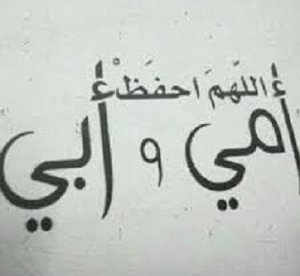 اللّهمَ احفَظْ
أمي و أبي